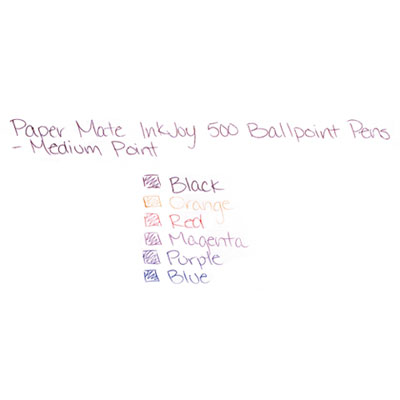 Paper Mate InkJoy 500 Ballpoint Pens
- Medium Point
Black
Orange
Red
Magenta
Purple
Blue